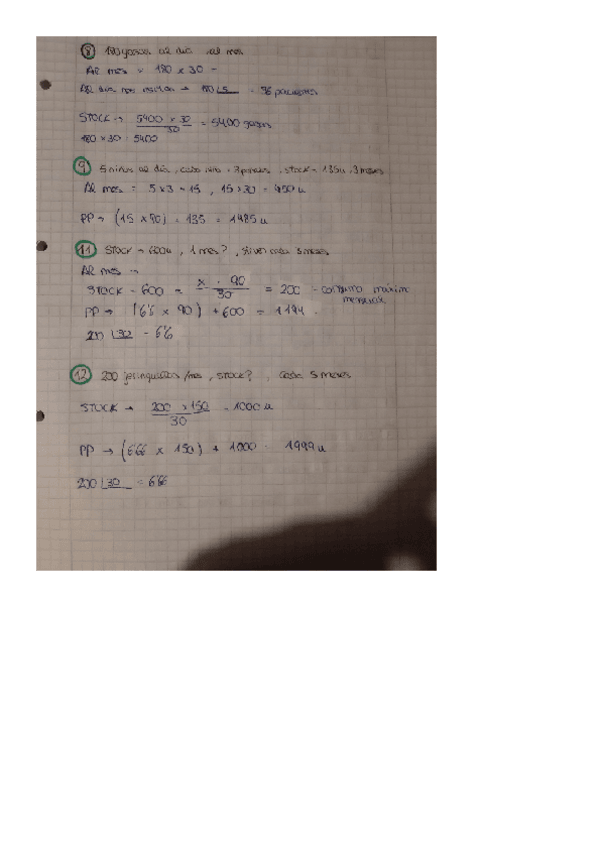 ⑧ 180 gasas al día, al mes
Al mes = 180 x 30 =
Al día nos visitan → 180 ⌊5 = 36 pacientes
STOCK → 5400 x 30 / 30 = 5400 gasas
180 x 30 = 5400
⑨ 5 niños al día, cada niño = 3 , stock = 135u, 3 meses
Al mes = 5 x 3 = 15 , 15 x 30 = 450 u
PP → (15 x 90) + 135 = 1485 u
⑪ STOCK → 600u , 1 mes? , sirven cada 3 meses
Al mes →
STOCK - 600 = x · 90 / 30 = 200 - consumo máximo mensual
PP → (6'6 x 90) + 600 = 1194.
200 ⌊30 = 6'6
⑫ 200 jeringuillas /mes , STOCK? , cada 5 meses
STOCK → 200 x 150 / 30 = 1000 u
PP → (6'66 x 150) + 1000 = 1999 u
200 ⌊30 = 6'66